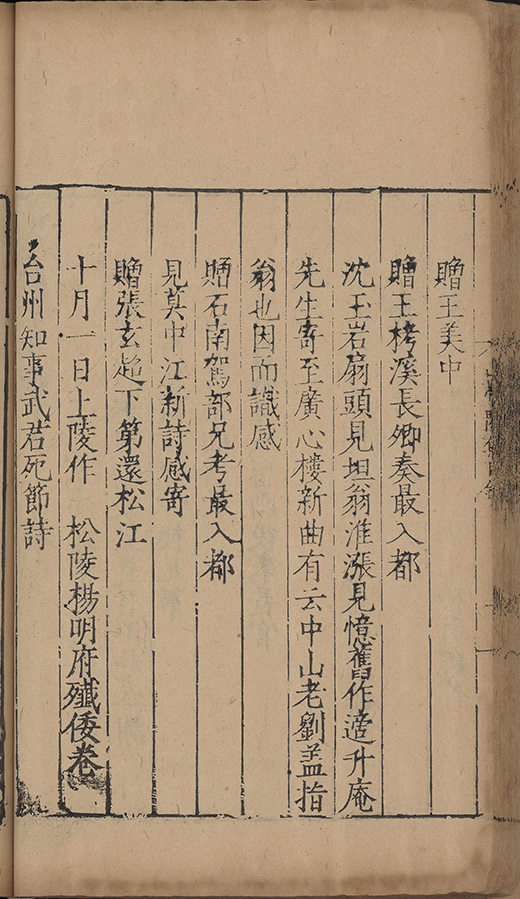 贈王美中
贈王栲溪長卿奏最入都
沈玉岩扇頭見坦翁淮漲見憶舊作適升庵
先生寄至廣心樓新曲有云中山老劉盖指
翁也因而識感
贈石南駕部兄考最入都
見莫中江新詩感寄
贈張玄超下第還松江
十月一日上陵作　松陵楊明府殲倭卷
台州知事武君死節詩